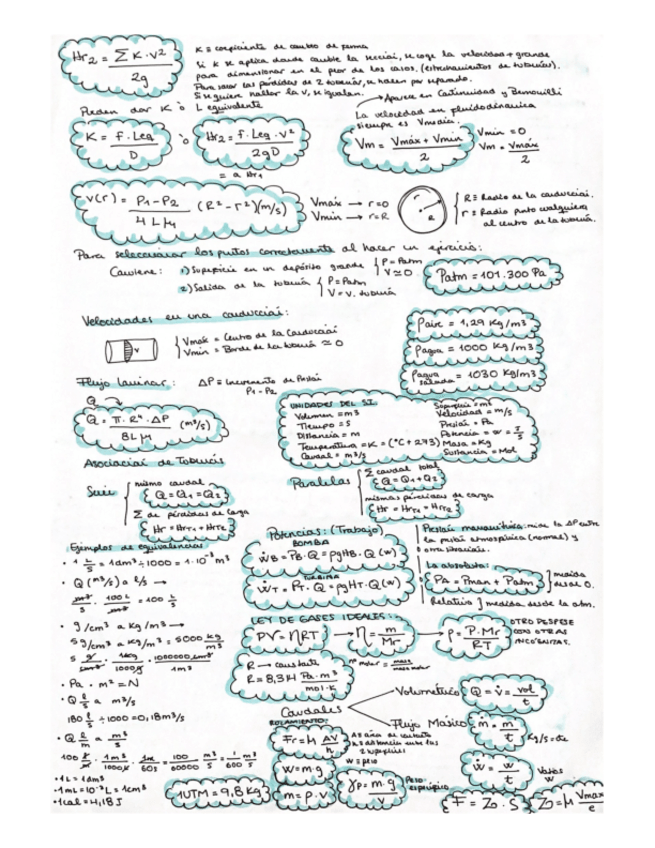 Hr₂ = ΣK·V² / 2g
K ≡ coeficiente de cambio de forma
Si K se aplica donde cambie la sección, se coge la velocidad + grande
para dimensionar en el peor de los casos. (estrechamientos de tubería).
Para sacar las pérdidas de 2 tuberías, se hacen por separado.
Si se quiere hallar la v, se igualan.
Pueden dar K ò L equivalente
→ Aparece en Continuidad y Bernouilli
La velocidad en fluidodinámica
siempre es Vmedia.
K = f·Leq / D ò Hr₂ = f·Leq·v² / 2gD
= a Hr₁
Vm = Vmáx + Vmin / 2
Vmin = 0
Vm = Vmáx / 2
v(r) = P₁-P₂ / 4Lμ (R²-r²)(m/s)
Vmáx → r=0
Vmin → r=R
r
R
R ≡ Radio de la conducción.
r ≡ Radio punto cualquiera
al centro de la tubería.
Para seleccionar los puntos correctamente al hacer un ejercicio:
Conviene: 1) Superficie en un depósito grande { P = Patm
V ≃ 0
2) Salida de la tubería { P = Patm
V = v. tubería
Patm = 101.300 Pa
Velocidades en una conducción:
v
Vmáx = Centro de la Conducción
Vmin = Borde de la tubería ≃ 0
ρaire = 1,29 Kg/m3
ρagua = 1000 Kg/m3
ρagua salada = 1030 Kg/m3
Flujo laminar: ΔP = Incremento de Presión
P₁-P₂
Q
Q = π·R⁴·ΔP / 8Lμ (m³/s)
UNIDADES DEL S.I.
Volumen = m3
Tiempo = s
Distancia = m
Temperatura = K = (°C + 273)
Caudal = m3/s
Superficie = m²
Velocidad = m/s
Presión = Pa
Potencia = w = J/s
Masa = Kg
Sustancia = Mol
Asociación de Tuberías
Serie { mismo caudal
Q = Q₁ = Q₂
Σ de pérdidas de carga
Hr = Hr₁ + Hr₂
Paralelas { Σ caudal total
Q = Q₁ + Q₂
mismas pérdidas de carga
Hr = Hr₁ = Hr₂
Ejemplos de equivalencias
• 1 L/s = 1dm³ ÷ 1000 = 1·10⁻³ m³
• Q (m³/s) a l/s →
= 100 L/s
• g/cm³ a Kg/m³ →
5g/cm³ a Kg/m³ = 5000 kg/m3
5 g/cm³ · 1kg/1000g · 1000000cm³/1m3
• Pa · m² = N
• Q l/s a m³/s
180 l/s ÷ 1000 = 0,18m³/s
• Q l/m a m³/s
100 l/m · 1m3/1000l · 1m/60s = 100/60 m³/s = 1/600 m³/s
• 1L = 1dm³
• 1mL = 10⁻³L = 1cm³
• 1cal = 4,18J
Potencias: (Trabajo)
BOMBA
ẆB = PB·Q = ρgHB·Q (w)
TURBINA
ẆT = PT·Q = ρgHT·Q (w)
Presión manométrica: mide la ΔP entre
la presión atmosférica (normal) y
otra situación.
La absoluta:
PA = Pman + Patm } medida desde 0.
Relativa } medida desde la atm.
LEY DE GASES IDEALES:
PV = nRT → n = m/Mr → ρ = P·Mr / RT
OTRO DESPEJE
CON OTRAS
INCÓGNITAS.
R → constante
R = 8,314 Pa·m³ / mol·K
nº molar = masa / masa molar
Caudales
Volumétrico Q = v̇ = vol/t
Flujo Másico ṁ = m/t Kg/s
ẇ = w/t
ROZAMIENTO:
Fr = μ AV/h
A = área de contacto
h = distancia entre las
2 superficies
w = peso
W = m·g
m = ρ·v
γp = m·g / v
Peso específico
1UTM = 9,8 Kg
F = Zo·S
Zo = μ Vmax/e